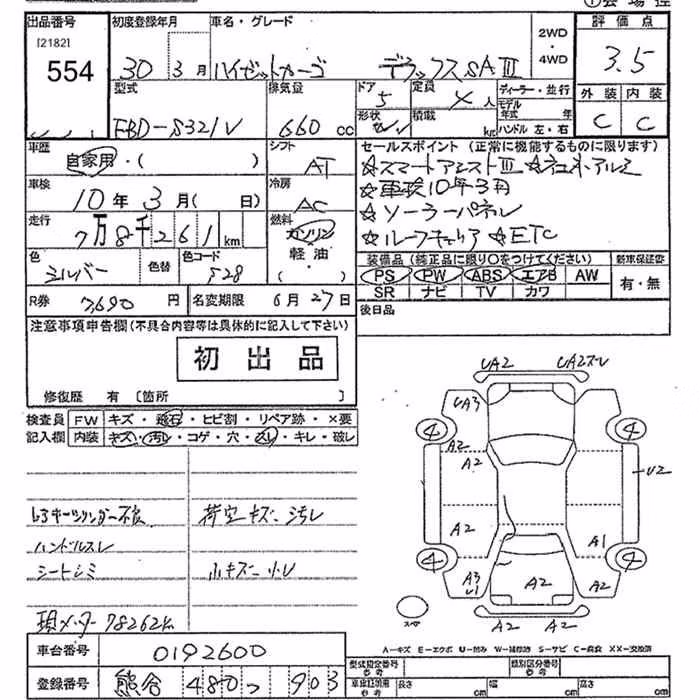 出品番号 初度登録年月 車名・グレード 2WD・4WD 評価点
[2182]
554 30 3月 ハイゼットカーゴ デラックスSAⅢ 3.5
型式 排気量 ドア 5 定員 4人 ディーラー・並行 外装 内装
EBD-S321V 660cc 形状 積載 kg モデル年式 年 ハンドル 左・右 C C
車歴 シフト セールスポイント(正常に機能するものに限ります)
自家用・( ) AT ☆スマートアシストⅢ ☆社外アルミ
車検 冷房 ☆車検10年3月
10年3月( 日) AC ☆ソーラーパネル
走行 燃料 ☆ルーフキャリア ☆ETC
7万8千261km ガソリン
色 色替 色コード 軽油・ 装備品(純正品に限り○をつけてください) 新車保証書
シルバー S28 ( ) PS PW ABS エアB AW 有・無
R券 7,690円 名変期限 6月27日 SR ナビ TV カワ
注意事項申告欄(不具合内容等は具体的に記入して下さい) 後日品
初出品
修復歴 有〔箇所 〕
検査員 FW キズ・飛石・ヒビ割・リペア跡・×要
記入欄 内装 キズ・汚レ・コゲ・穴・スレ・キレ・破レ
UA2 UA2ズレ
UA3
4 4
A2
A2 U2
A2 A1
4 4
A3 U1 A2 A2
A2 A2
スペア
キーシリンダー不良 荷室キズ汚レ
ハンドルスレ
シートシミ 小キズ 小U
現メーター 78262k
A-キズ E-エクボ U-凹み W-補修跡 S-サビ C-腐食 XX-交換済
車台番号 0192600 型式指定番号 類別区分番号
登録番号 熊谷 480 つ 903 車庫証明用 長さ cm 幅 cm 高さ cm